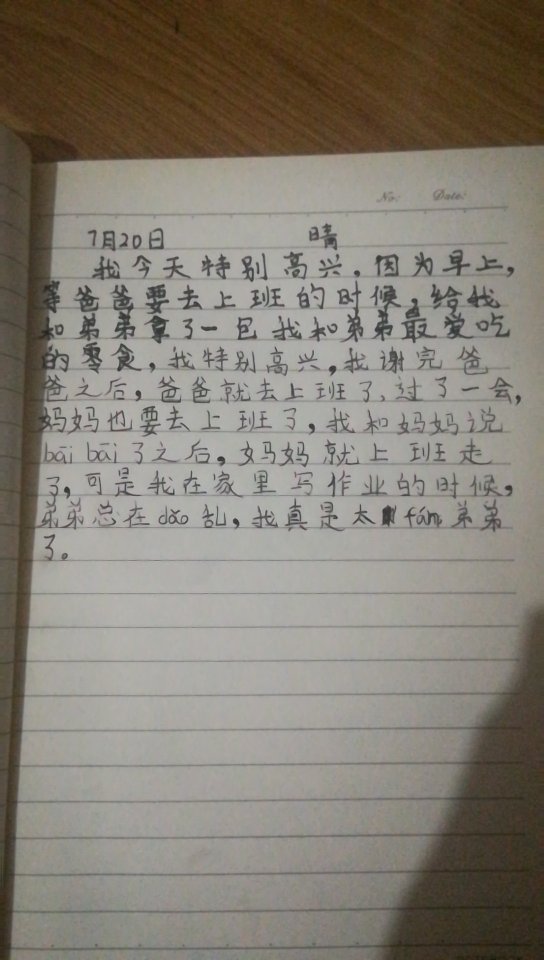 No: Date:
7月20日 晴
我今天特别高兴，因为早上，
等爸爸要去上班的时候，给我
和弟弟拿了一包我和弟弟最爱吃
的零食，我特别高兴，我谢完爸
爸之后，爸爸就去上班了，过了一会，
妈妈也要去上班了，我和妈妈说
bāi bāi了之后，妈妈就上班走
了，可是我在家里写作业的时候，
弟弟总在dǎo乱，我真是太fán弟弟
了。